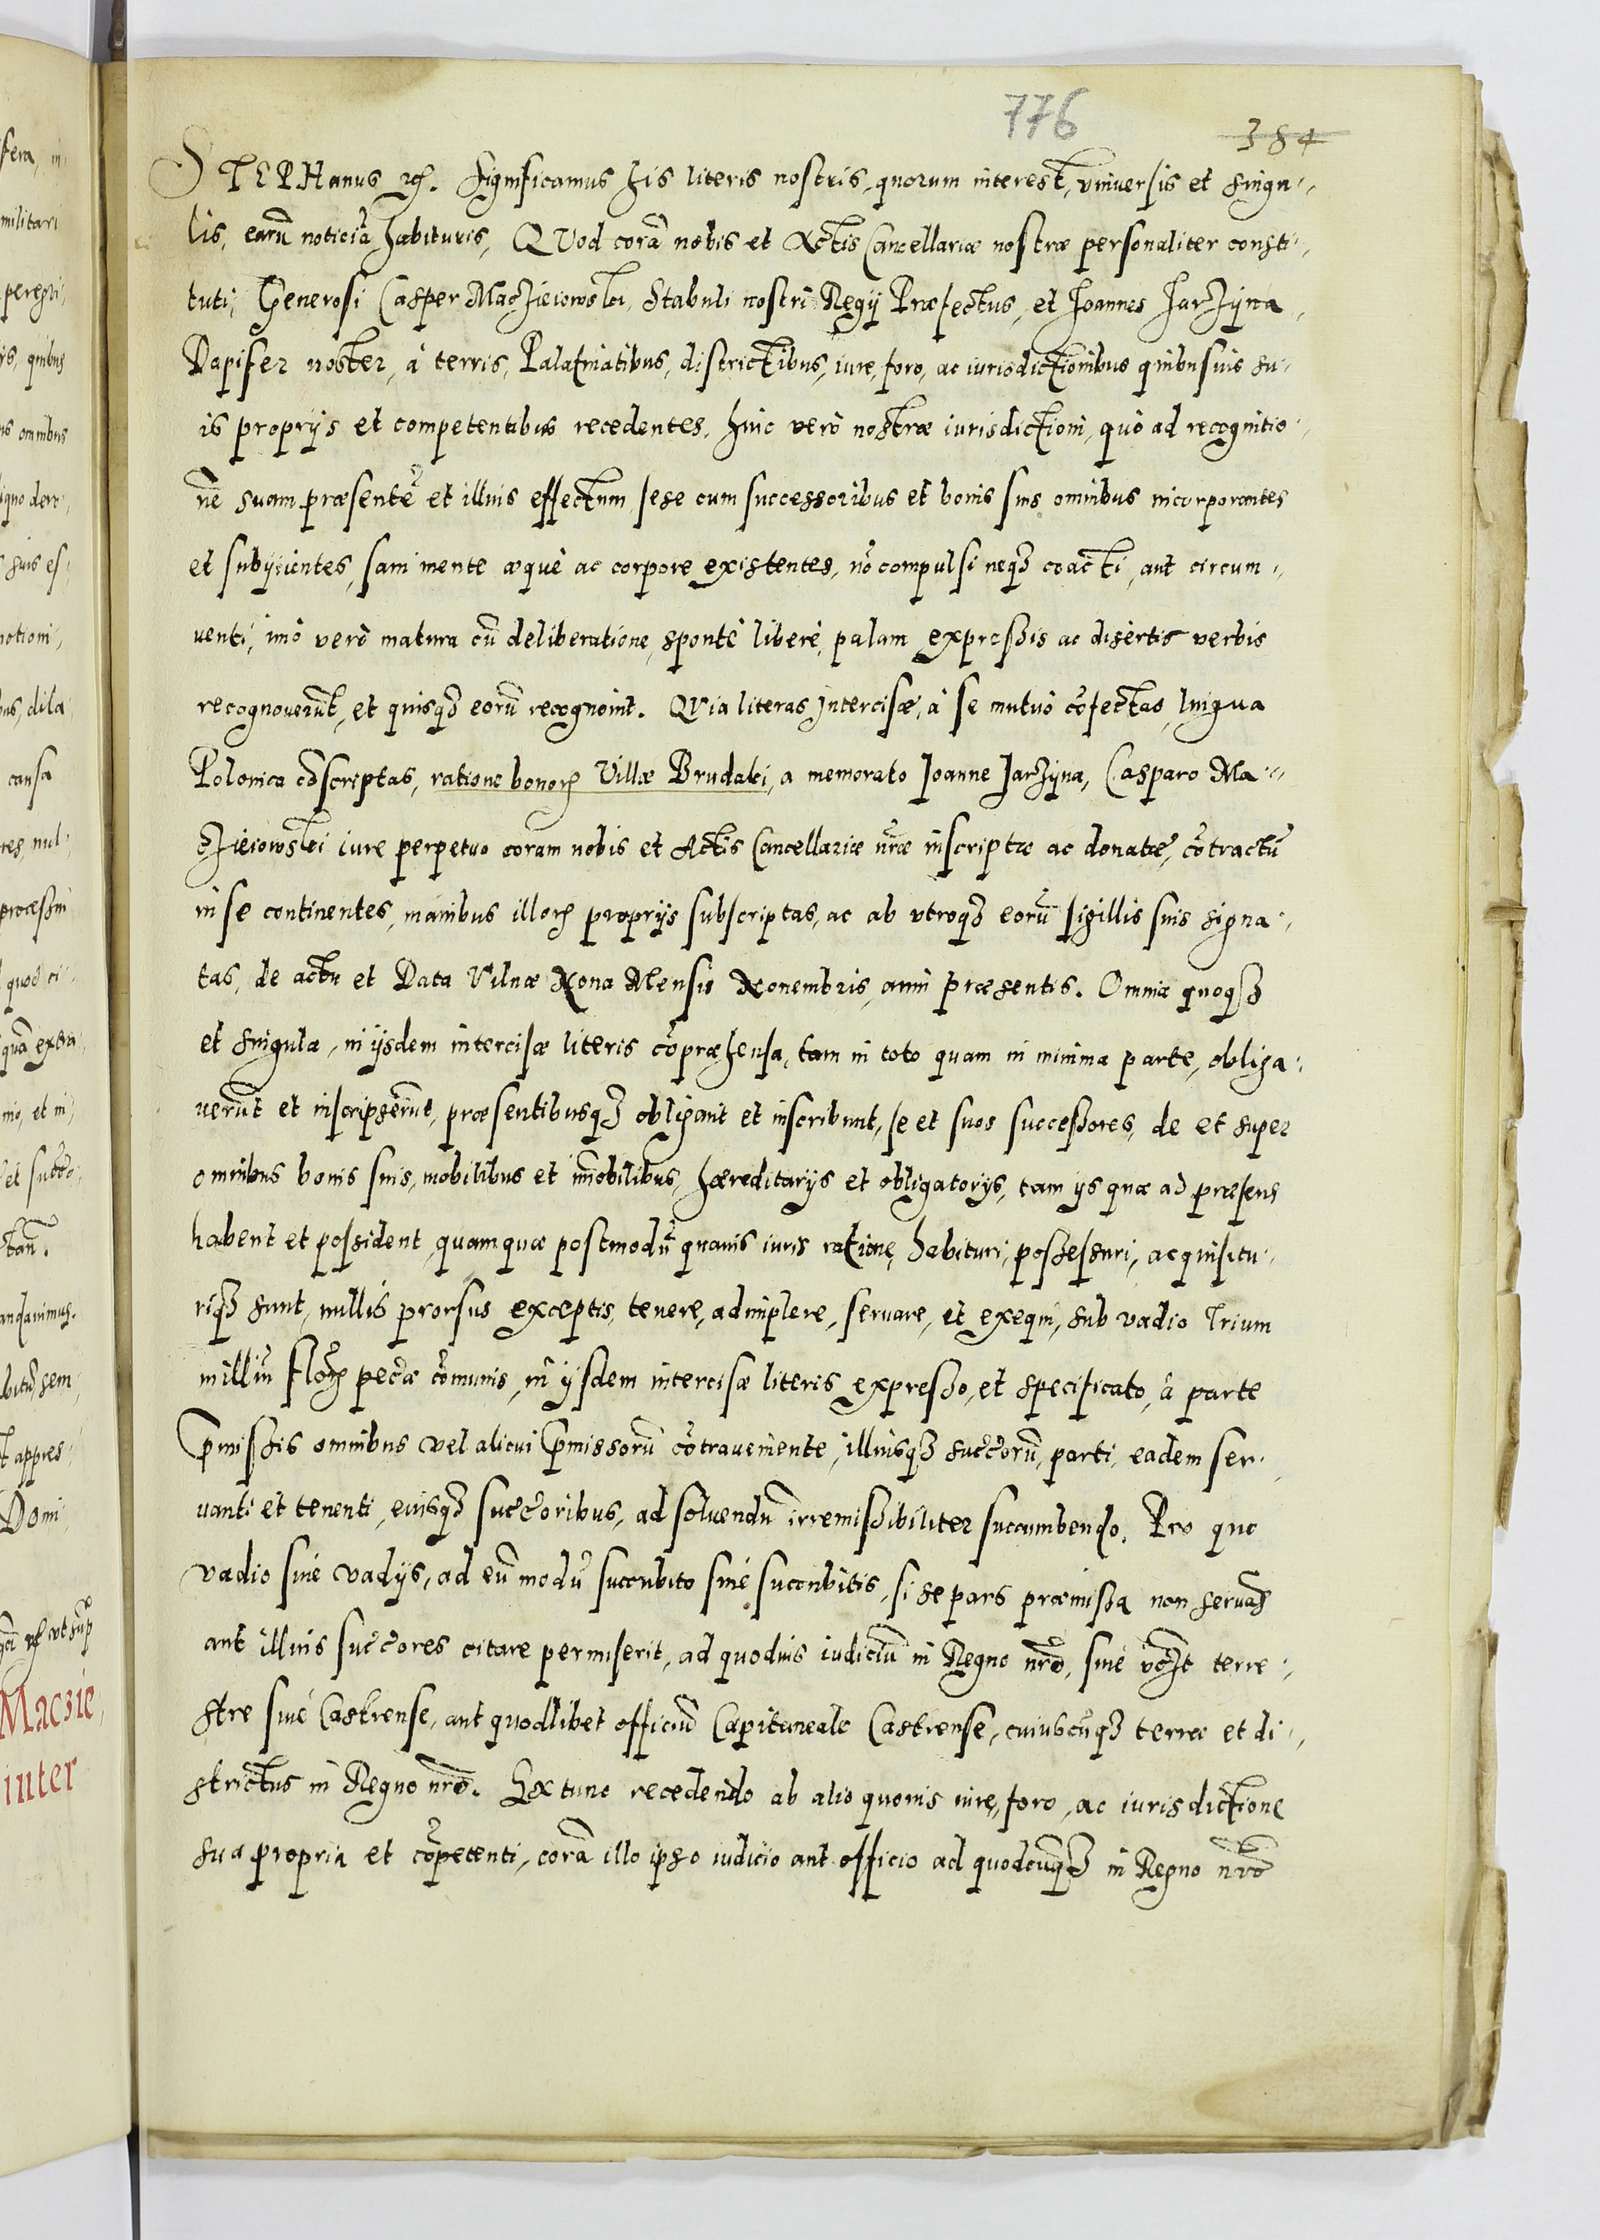 776
384
STEPHanus etc. Significamus his literis nostris, quorum interest, vniuersis et singu-
lis, earũ noticiã habituris, QVod corã nobis et Actis Cancellariæ nostræ personaliter consti-
tuti, Generosi Casper Maczieiowski, Stabuli nostri Regij Præfectus, et Joannes Jarzÿna
Dapifer noster, à terris, Palatinatibus, districtibus, iure, foro, ac iurisdictionibus quibusuis su-
is proprijs et competentibus recedentes, huic verò nostræ iurisdictioni, quò ad recognitio-
nẽ suam præsentẽ et illius effectum, sese cum successoribus et bonis suis omnibus incorporantes
et subijcientes, sani mente æquè ac corpore existentes, nõ compulsi neqз coacti, aut circum-
uenti, imò verò matura cũ deliberatione, spontè liberè, palam expressis ac disertis verbis
recognouerũt, et quisqз eorũ recognouit. QVia literas Intercisæ, à se mutuò cõfectas, lingua
Polonica cõscriptas, ratione bonorꝝ Villæ Brudaki, a memorato Joanne Jarzÿna, Casparo Ma-
czieiowski iure perpetuo coram nobis et Actis Cancellariæ nræ inscriptæ ac donatæ, cõtractũ
in se continentes, manibus illorꝝ proprijs subscriptas, ac ab vtroqз eorũ sigillis suis signa-
tas, de actu et Data Vilnæ Nona Mensis Nouembris, anni præsentis. Omnia quoqз
et singula, in ijsdem intercisæ literis cõpræhensa, tam in toto quam in minima parte, obliga-
uerũt et inscripserũt, præsentibusqз obligant et inscribunt, se et suos successores, de et super
omnibus bonis suis, mobilibus et imobilibus, hæreditarijs et obligatorijs, tam ijs quæ ad præsens
habent et possident, quam quæ postmodũ quauis iuris ratione habituri, possessuri, acquisitu-
riqз sunt, nullis prorsus exceptis, tenere, adimplere, seruare, et exequi, sub vadio Trium
milliũ Florꝝ pecũæ cõmunis, in ijsdem intercisæ literis expresso, et specificato, à parte
p̃missis omnibus vel alicui p̃missorũ cõtraueniente, illiusqз succorũ, parti, eadem ser-
uanti et tenenti, eiusqз succoribus, ad soluendũ irremissibiliter succumbendo. Pro quo
vadio siue vadijs, ad eũ modũ succubito siue succubitis, si se pars præmissa non seruãs
aut illius succores citare permiserit, ad quoduis iudiciũ in Regno nrõ, siue terre-
stre siue Castrense, aut quodlibet officiũ Capitaneale Castrense, cuiuscũqз terræ et di-
strictus in Regno nrõ. Ex tunc recedendo ab alio quouis iure, foro, ac iurisdictione
sua propria et cõpetenti, corã illo ipso iudicio aut officio ad quodcũqз in Regno nrõ
Maczie
inter